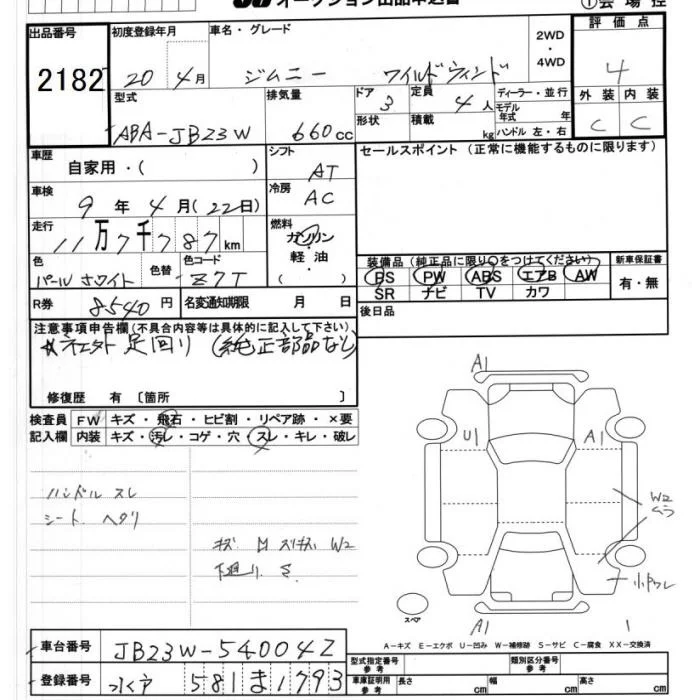 オークション出品申込書
①会場控
出品番号 初度登録年月 車名・グレード 2WD・4WD 評価点
2182 20年4月 ジムニー ワイルドウィンド 4
型式 排気量 ドア 定員 ディーラー・並行 外装 内装
ABA-JB23W 660cc 3 4人 モデル年式 年 C C
形状 積載 kg ハンドル 左・右
車歴 自家用・( ) シフト AT セールスポイント (正常に機能するものに限ります)
車検 9年4月(22日) 冷房 AC
走行 11万7千787km 燃料 ガソリン・軽油・( )
色 パールホワイト 色替 色コード Z7T
装備品 (純正品に限り○をつけてください) 新車保証書
PS PW ABS エアB AW 有・無
SR ナビ TV カワ
R券 8540円 名変通知期限 月 日 後日品
注意事項申告欄 (不具合内容等は具体的に記入して下さい)
社外足回り (純正部品なし)
修復歴 有 〔箇所 〕
検査員 FW キズ・飛石・ヒビ割・リペア跡・×要
記入欄 内装 キズ・汚レ・コゲ・穴・スレ・キレ・破レ
ハンドル スレ
シート ヘタリ
W2
下廻り S
A1
U1 A1
W2
ムラ
スペア
A1 1
A-キズ E-エクボ U-凹み W-補修跡 S-サビ C-腐食 XX-交換済
車台番号 JB23W-540042
型式指定番号 参考 類別区分番号 参考
登録番号 水戸 581 ま 1793
車庫証明用 参考 長さ cm 幅 cm 高さ cm